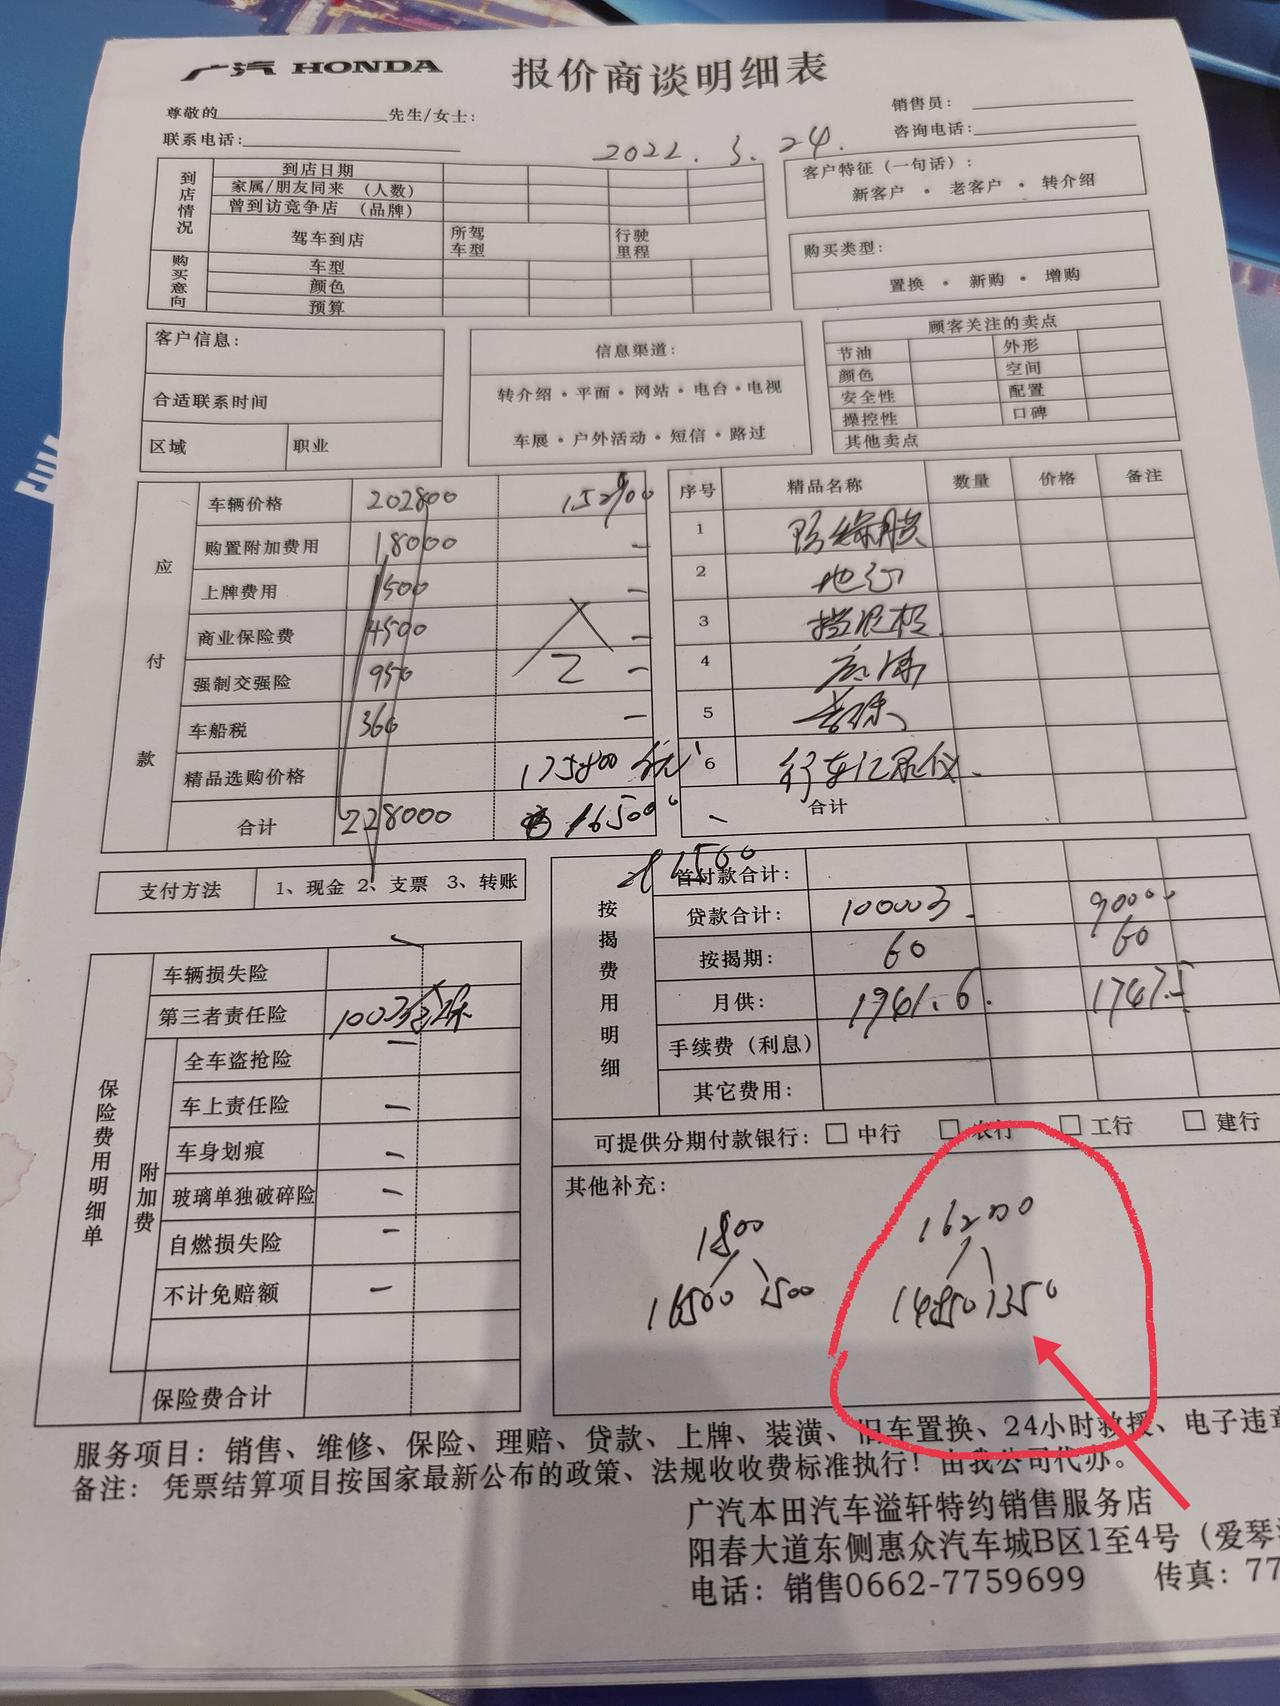 广汽 HONDA 报价商谈明细表
尊敬的 先生/女士:
销售员:
联系电话:
咨询电话:
2022.3.24.
到店情况
到店日期
家属/朋友同来 (人数)
曾到访竞争店 (品牌)
驾车到店 所驾车型 行驶里程
购买意向
车型
颜色
预算
客户特征(一句话):
新客户 · 老客户 · 转介绍
购买类型:
置换 · 新购 · 增购
客户信息:
合适联系时间
区域 职业
信息渠道:
转介绍·平面·网站·电台·电视
车展·户外活动·短信·路过
顾客关注的卖点
节油 外形
颜色 空间
安全性 配置
操控性 口碑
其他卖点
应付款
车辆价格 202800
购置附加费用 18000
上牌费用 1500
商业保险费 4500
强制交强险 950
车船税 360
精品选购价格 175800
合计 228000 16500
序号 精品名称 数量 价格 备注
1
2
3 挡泥板
4
5
6 行车记录仪
合计
支付方法 1、现金 2、支票 3、转账
按揭费用明细
首付款合计:
贷款合计: 90000
按揭期: 60 60
月供: 1941.6. 1747.5
手续费(利息)
其它费用:
可提供分期付款银行: □ 中行 □ 农行 □ 工行 □ 建行
保险费用明细单
车辆损失险
第三者责任险
附加费
全车盗抢险
车上责任险
车身划痕
玻璃单独破碎险
自燃损失险
不计免赔额
保险费合计
其他补充:
1800 16200
16500 1500 14850 1350
服务项目: 销售、维修、保险、理赔、贷款、上牌、装潢、旧车置换、24小时救援、电子违章
备注: 凭票结算项目按国家最新公布的政策、法规收收费标准执行! 由我公司代办。
广汽本田汽车溢轩特约销售服务店
阳春大道东侧惠众汽车城B区1至4号 (爱琴
电话: 销售0662-7759699 传真: 77